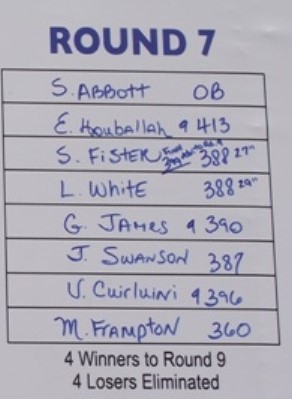 ROUND 7
S. ABBOTT OB
E. Houballah 9 413
S. FISTER 388 27"
L. White 388 29"
G. JAMES 9 390
J. SWANSON 387
V. Cuirluini 9 396
M. FRAMPTON 360
4 Winners to Round 9
4 Losers Eliminated